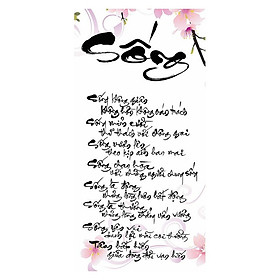 Sống
Sống không giận
không hờn không oán trách
Sống mỉm cười
thử thách với chông gai
Sống vươn lên
theo kịp ánh ban mai
Sống chan hòa
với những người chung sống
Sống là động
nhưng lòng luôn bất động
Sống là thương
nhưng lòng chẳng vấn vương
Sống yên vui
danh lợi mãi coi thường
Tâm bất biến
giữa dòng đời vạn biến